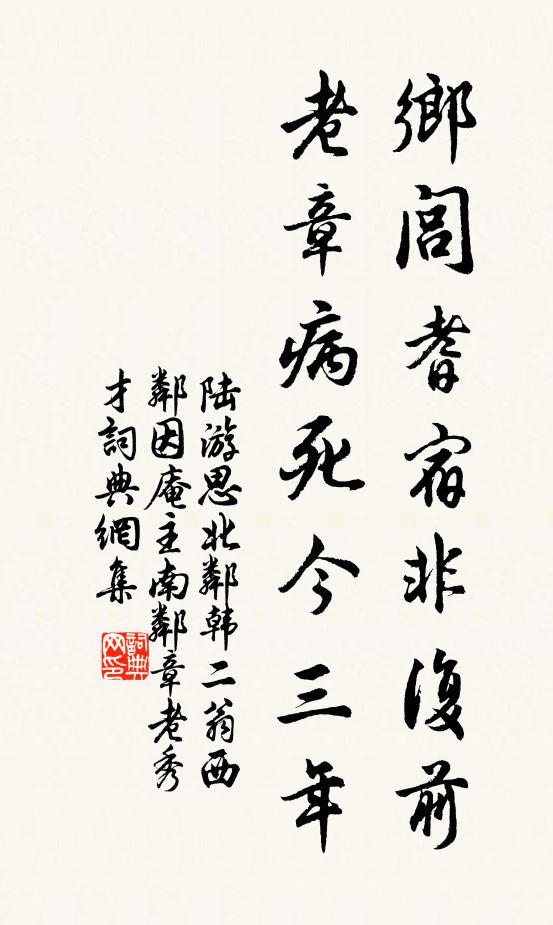 鄉閭耆宿非復前
老章病死今三年
陆游思北鄰韩二翁西
鄰因庵主南鄰章老秀
才詞典網集
詞典网印